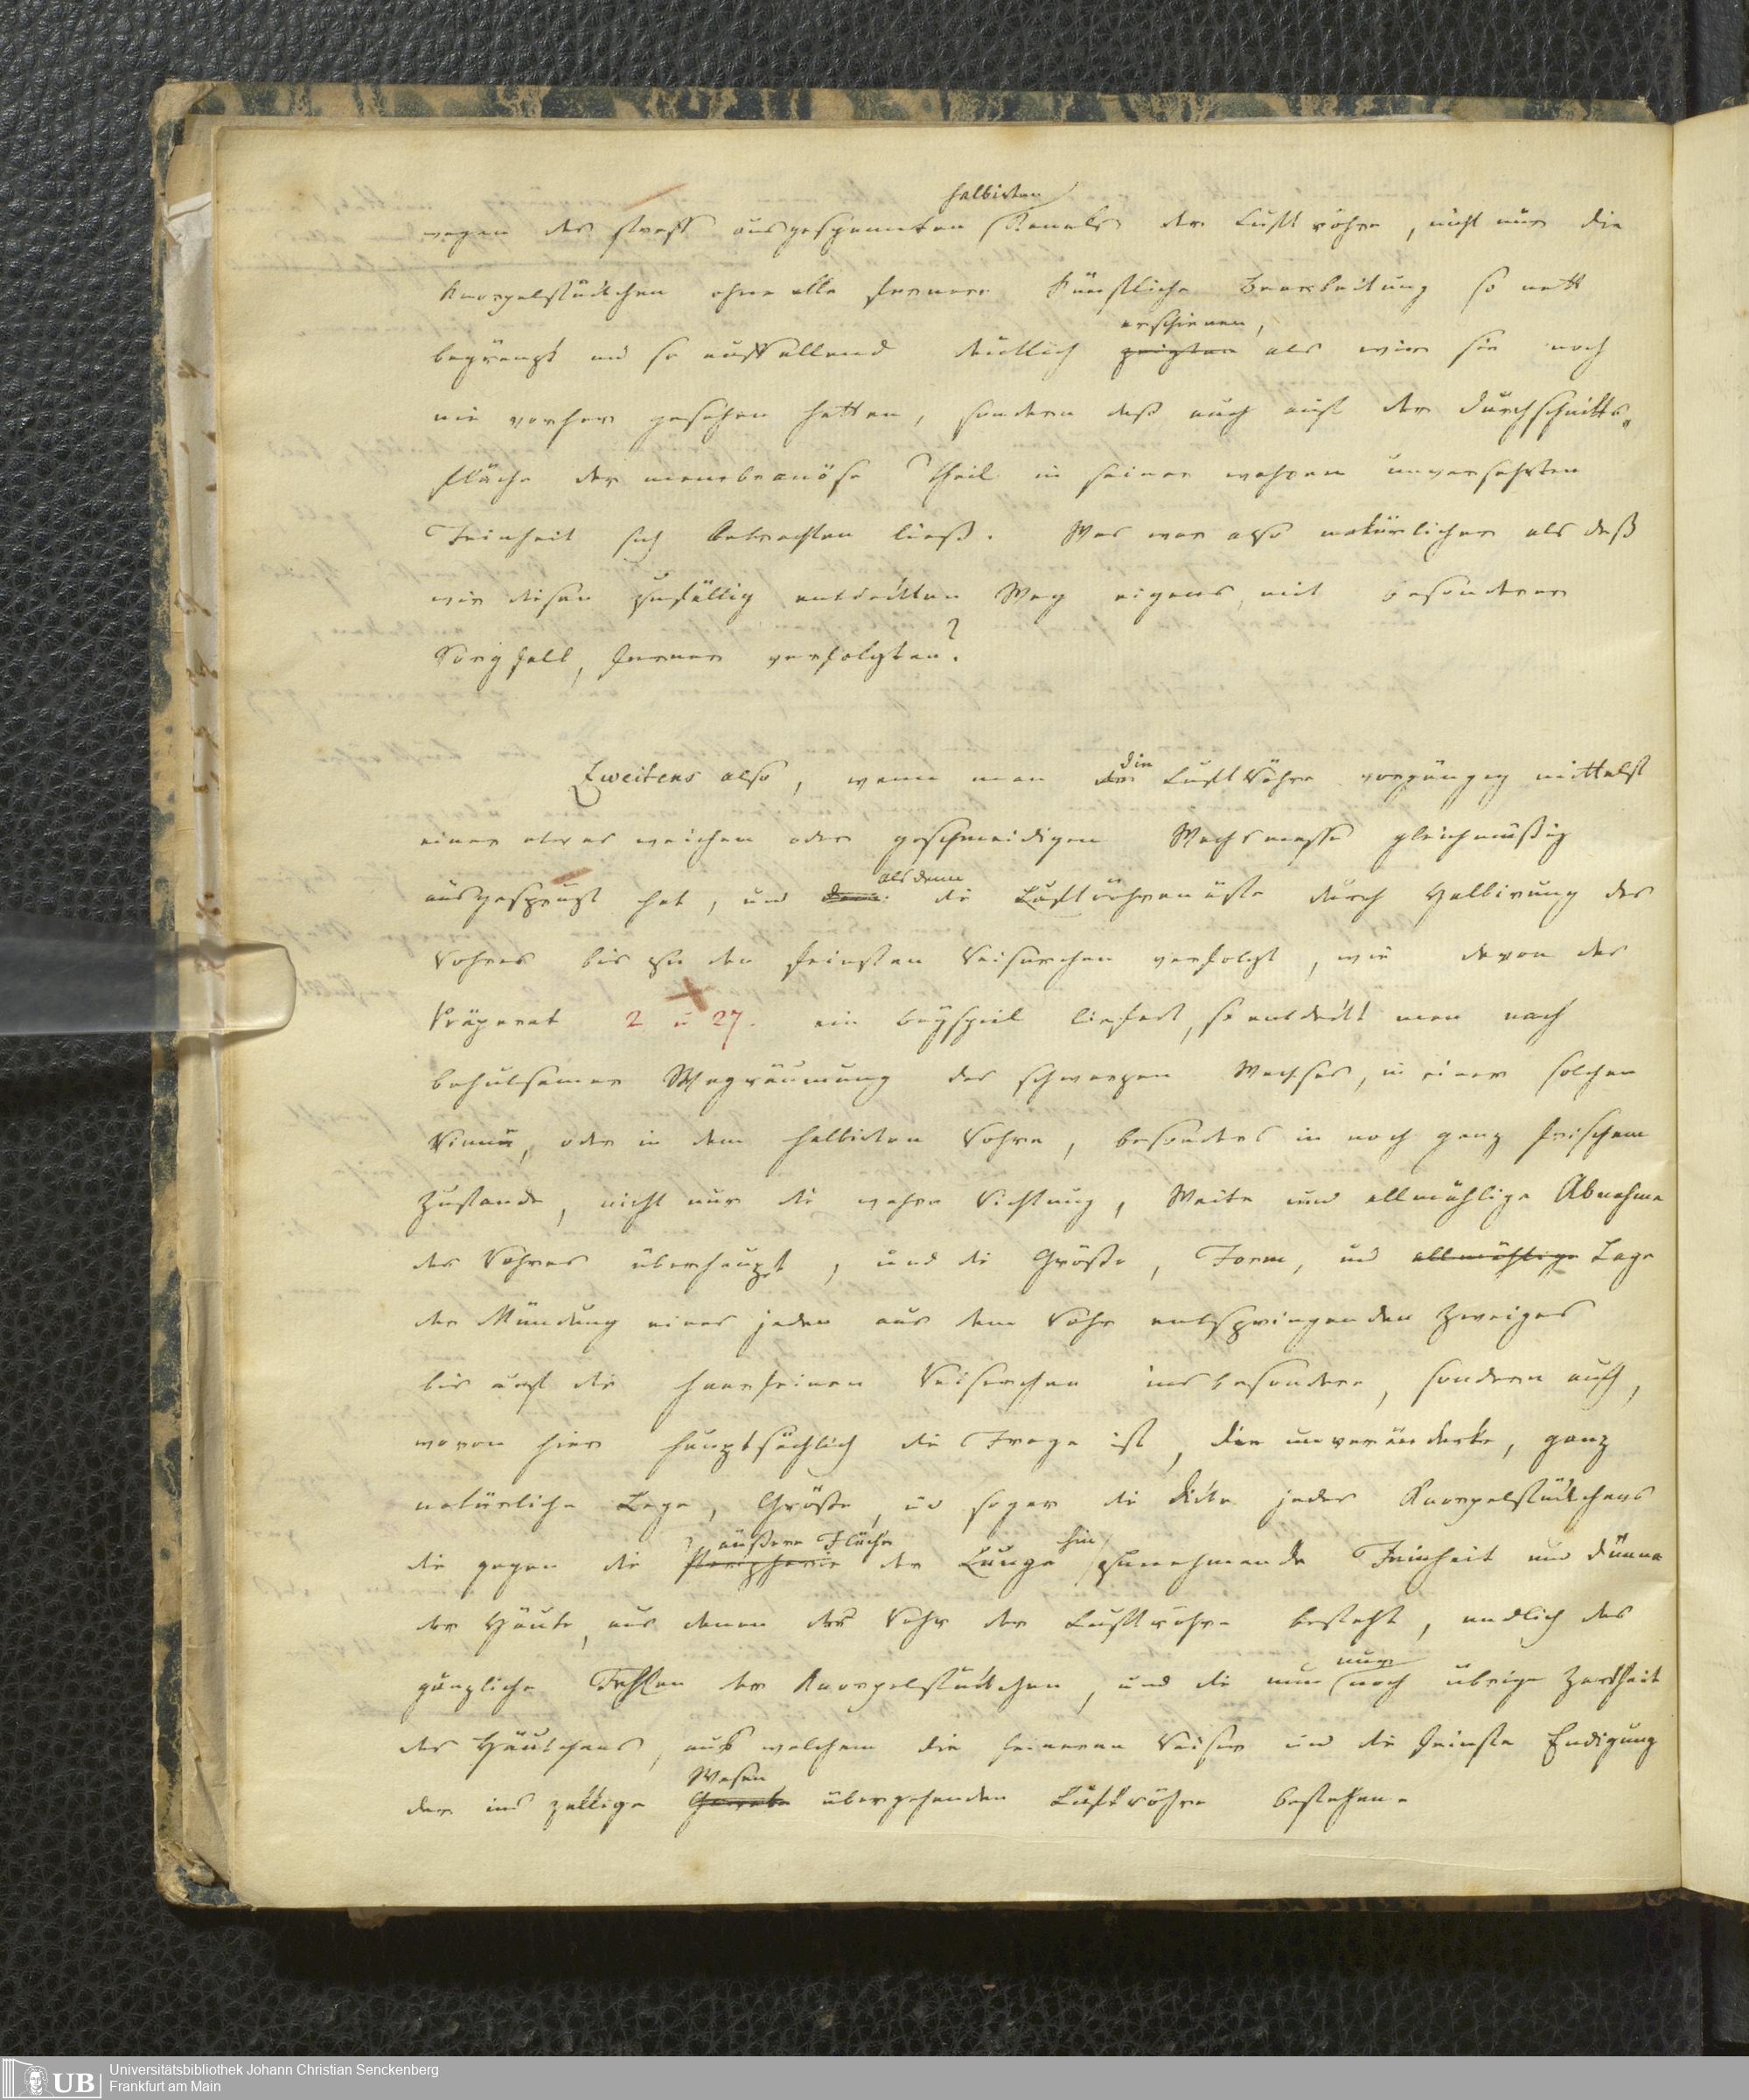 halbirten
wegen des straff ausgespannten Kanals der Luftröhre, nicht nur die
Knorpelstückchen ohne alle fernere künstliche Bearbeitung so nett
erschienen,
begränzt und so auffallend deutlich zeigten als wir sie noch
nie vorher gesehen hatten, sondern daß auch auf der Durchschnitts-
fläche der membranöse Theil in seiner wahren unversehrten
Feinheit sich betrachten ließ. Was war also natürlicher als daß
wir diesen zufällig entdeckten Weg eigens, mit besonderer
Sorgfalt, ferner verfolgten?
die
Zweitens also, wenn man der Luftröhre vorgängig mittelst
einer etwas weichen oder geschmeidigen Wachsmasse gleichmäßig
alsdenn
ausgesprützt hat, und dann die Luftröhrenäste durch Halbirung des
Rohres bis zu den feinsten Reiserchen verfolgt, wie davon das
Präparat 2 u 27. ein Beyspiel liefert, so entdeckt man nach
behutsamer Wegräumung des schwarzen Wachses, in einer solchen
Rinne, oder in dem halbirten Rohre, besonders in noch ganz frischem
Zustande, nicht nur die wahre Richtung, Weite und allmählige Abnahme
des Rohres überhaupt, und die Größe, Form, und allmählige Lage
der Mündung eines jeden aus dem Rohr entspringenden Zweiges
bis auf die haarfeinen Reiserchen insbesondere, sondern auch,
wovon hier hauptsächlich die Frage ist, die unveränderte, ganz
natürliche Lage, Größe, und sogar die Dicke jedes Knorpelstückchens
äußere Fläche hin
die gegen die Peripherie der Lunge zunehmende Feinheit und Dünne
der Häute, aus denen das Rohr der Luftröhre besteht, endlich das
nur
gänzliche Fehlen der Knorpelstückchen, und die nun noch übrige Zartheit
des Häutchens, aus welchem die feineren Reiser und die feinste Endigung
Wesen
der ins zellige Gewebe übergehenden Luftröhre bestehen.
Universitätsbibliothek Johann Christian Senckenberg
Frankfurt am Main
UB